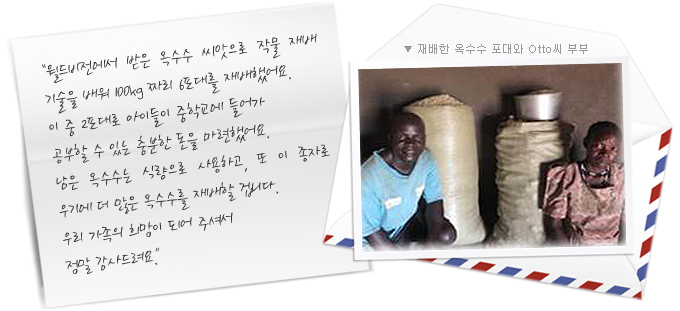 "월드비전에서 받은 옥수수 씨앗으로 작물 재배
기술을 배워 100kg 짜리 6포대를 재배했어요.
이 중 2포대로 아이들이 중학교에 들어가
공부할 수 있는 충분한 돈을 마련했어요.
남은 옥수수는 식량으로 사용하고, 또 이 종자로
우기에 더 많은 옥수수를 재배할 겁니다.
우리 가족의 희망이 되어 주셔서
정말 감사드려요."
▼ 재배한 옥수수 포대와 Otto씨 부부